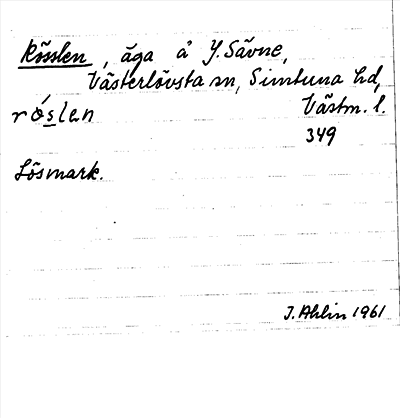 Rösslen, äga å Y. Sävne,
Västerlövsta sn, Simtuna hd,
róslen Västm. l.
349
Lösmark.
I. Ahlin 1961